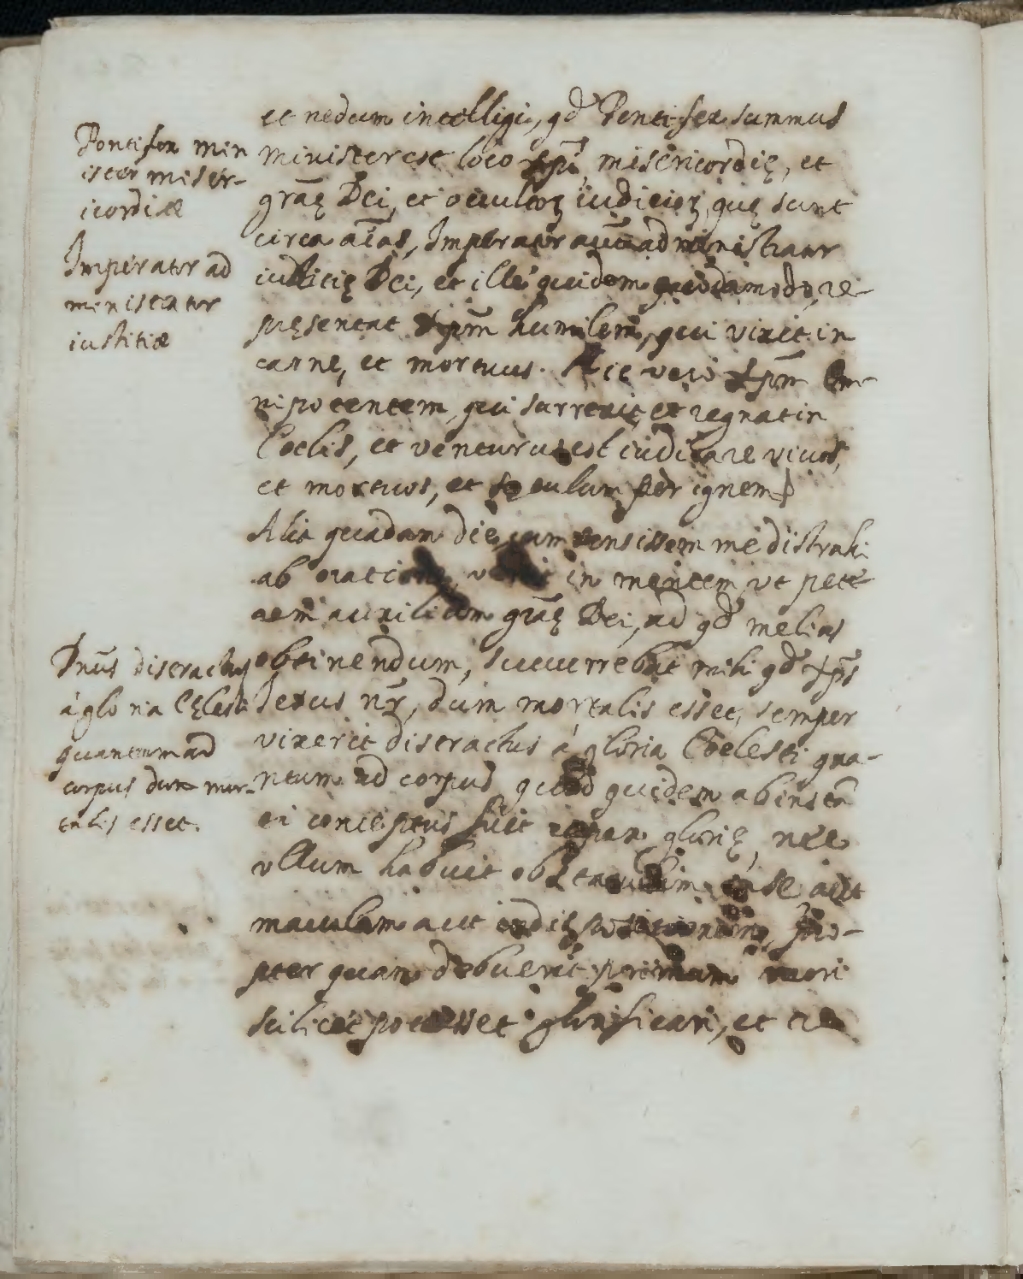 et nedum intelligi, qđ Pontifex summus
Pontifex min
ister miser-
icordiæ
minister est loco xpi, misericordię, et
grāę Dei, et occultoꝝ iudicioꝝ, quę sunt
circa aīas, Imperator autē administrator
Imperator ad
ministrator
iustitiæ
iustitię Dei, et ille quidem quodamodo, re-
pręsentat xpm̄ humilem, qui vixit in
carne, et mortuus. Hic vero xpm̄ om-
nipotentem, qui surrexit et regnat in
Coelis, et venturus est iudicare vivos,
et mortuos, et sęculum per ignem
Alia quadam die, cum sensissem me distrahi
ab oratione, venit in mentem, ut pete-
rem auxilium grāę Dei, ad qđ melius
Dn̄s distractus
à gloria Cęlesti
quantum ad
corpus dum mor-
talis esset.
obtinendum, succurrebat mihi qđ xp̄s
Iesus nr̄, dum mortalis esset, semper
vixerit distractus à gloria Coelesti qua-
ntum ad corpus, quod quidem ab instān
ei conceptus fuit capax glorię, nec
ullum habuit obstaculum in se aut
maculam aut indispositionem, pro-
pter quam debuerit primum mori
scilicet potuisset glorificari, et